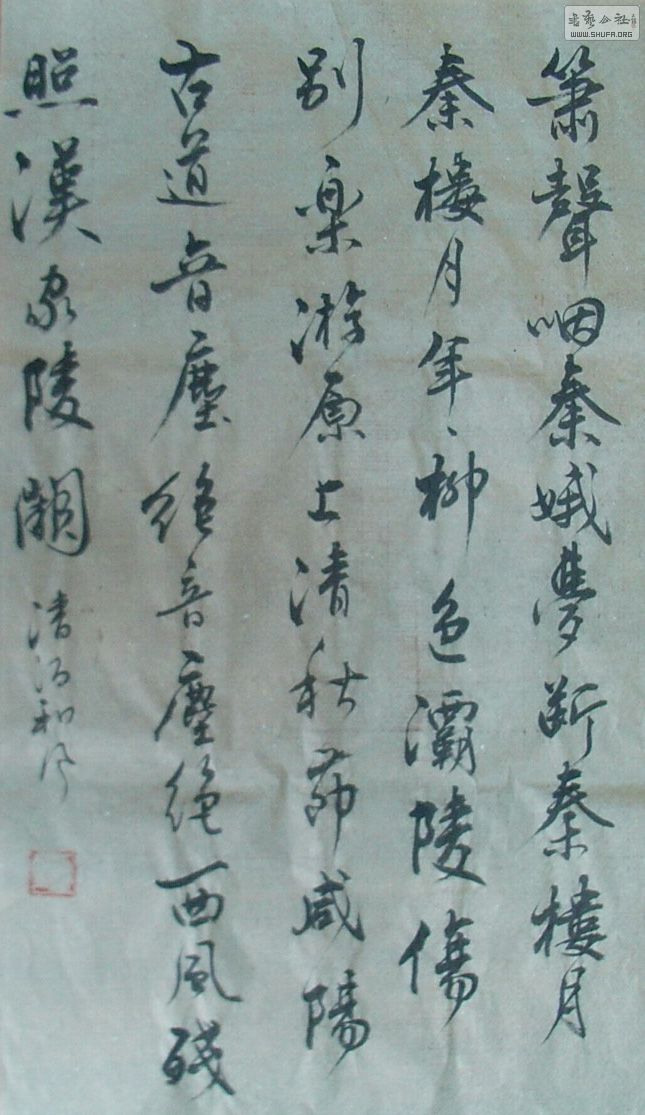 簫聲咽秦娥夢斷秦樓月
秦樓月年、柳色灞陵傷
别樂游原上清秋節咸陽
古道音塵絶音塵絶西風殘
照漢家陵闕
清河和
WWW.SHUFA.ORG